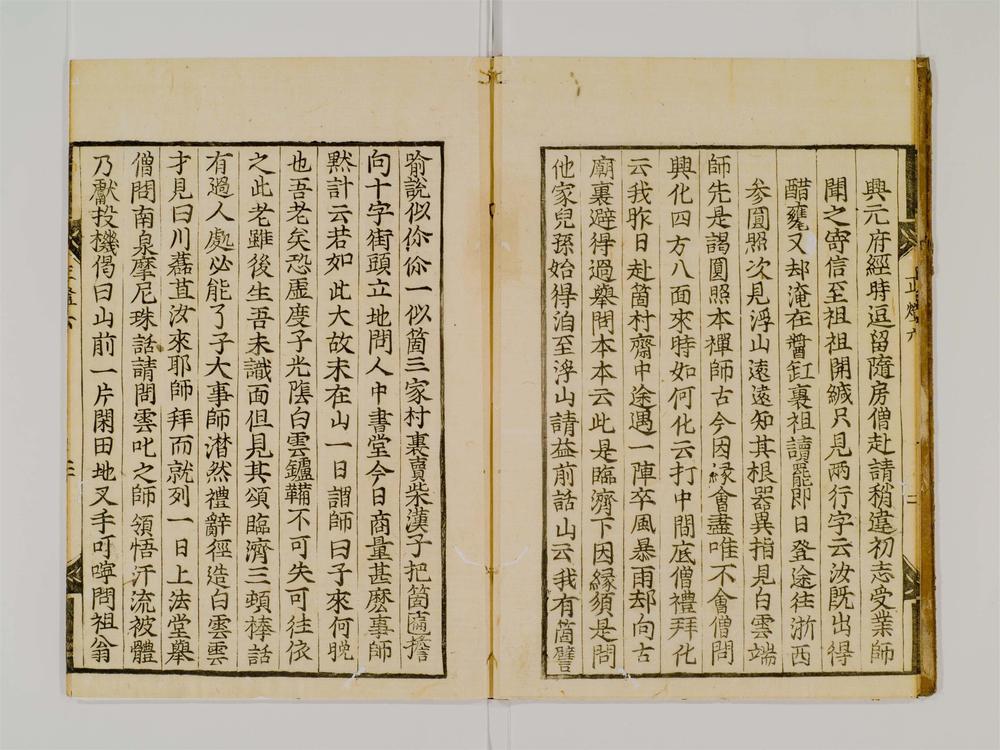 興元府經時逗留隨房僧赴請稍違初志受業師
聞之寄信至祖祖開緘只見兩行字云汝旣出得
醋甕又却淹在醬缸裏祖讀罷卽日登途往浙西
叅圓照次見浮山遠遠知其根器異指見白雲端
師先是謁圓照本禪師古今因緣會盡唯不會僧問
興化四方八面來時如何化云打中間底僧禮拜化
云我昨日赴箇村齋中途遇一陣卒風暴雨却向古
廟裏避得過擧問本本云此是臨濟下因緣須是問
他家兒孫始得洎至浮山請益前話山云我有箇譬
喩說似你你一似箇三家村裏賣柴漢子把箇匾擔
向十字街頭立地問人中書堂今日商量甚麽事師
默計云若如此大故未在山一日謂師曰子來何晚
也吾老矣恐虛度子光陰白雲鑪鞴不可失可往依
之此老雖後生吾未識面但見其頌臨濟三頓棒話
有過人處必能了子大事師潸然禮辭徑造白雲雲
才見曰川藞苴汝來耶師拜而就列一日上法堂擧
僧問南泉摩尼珠話請問雲叱之師領悟汗流被體
乃獻投機偈曰山前一片閑田地叉手叮嚀問祖翁